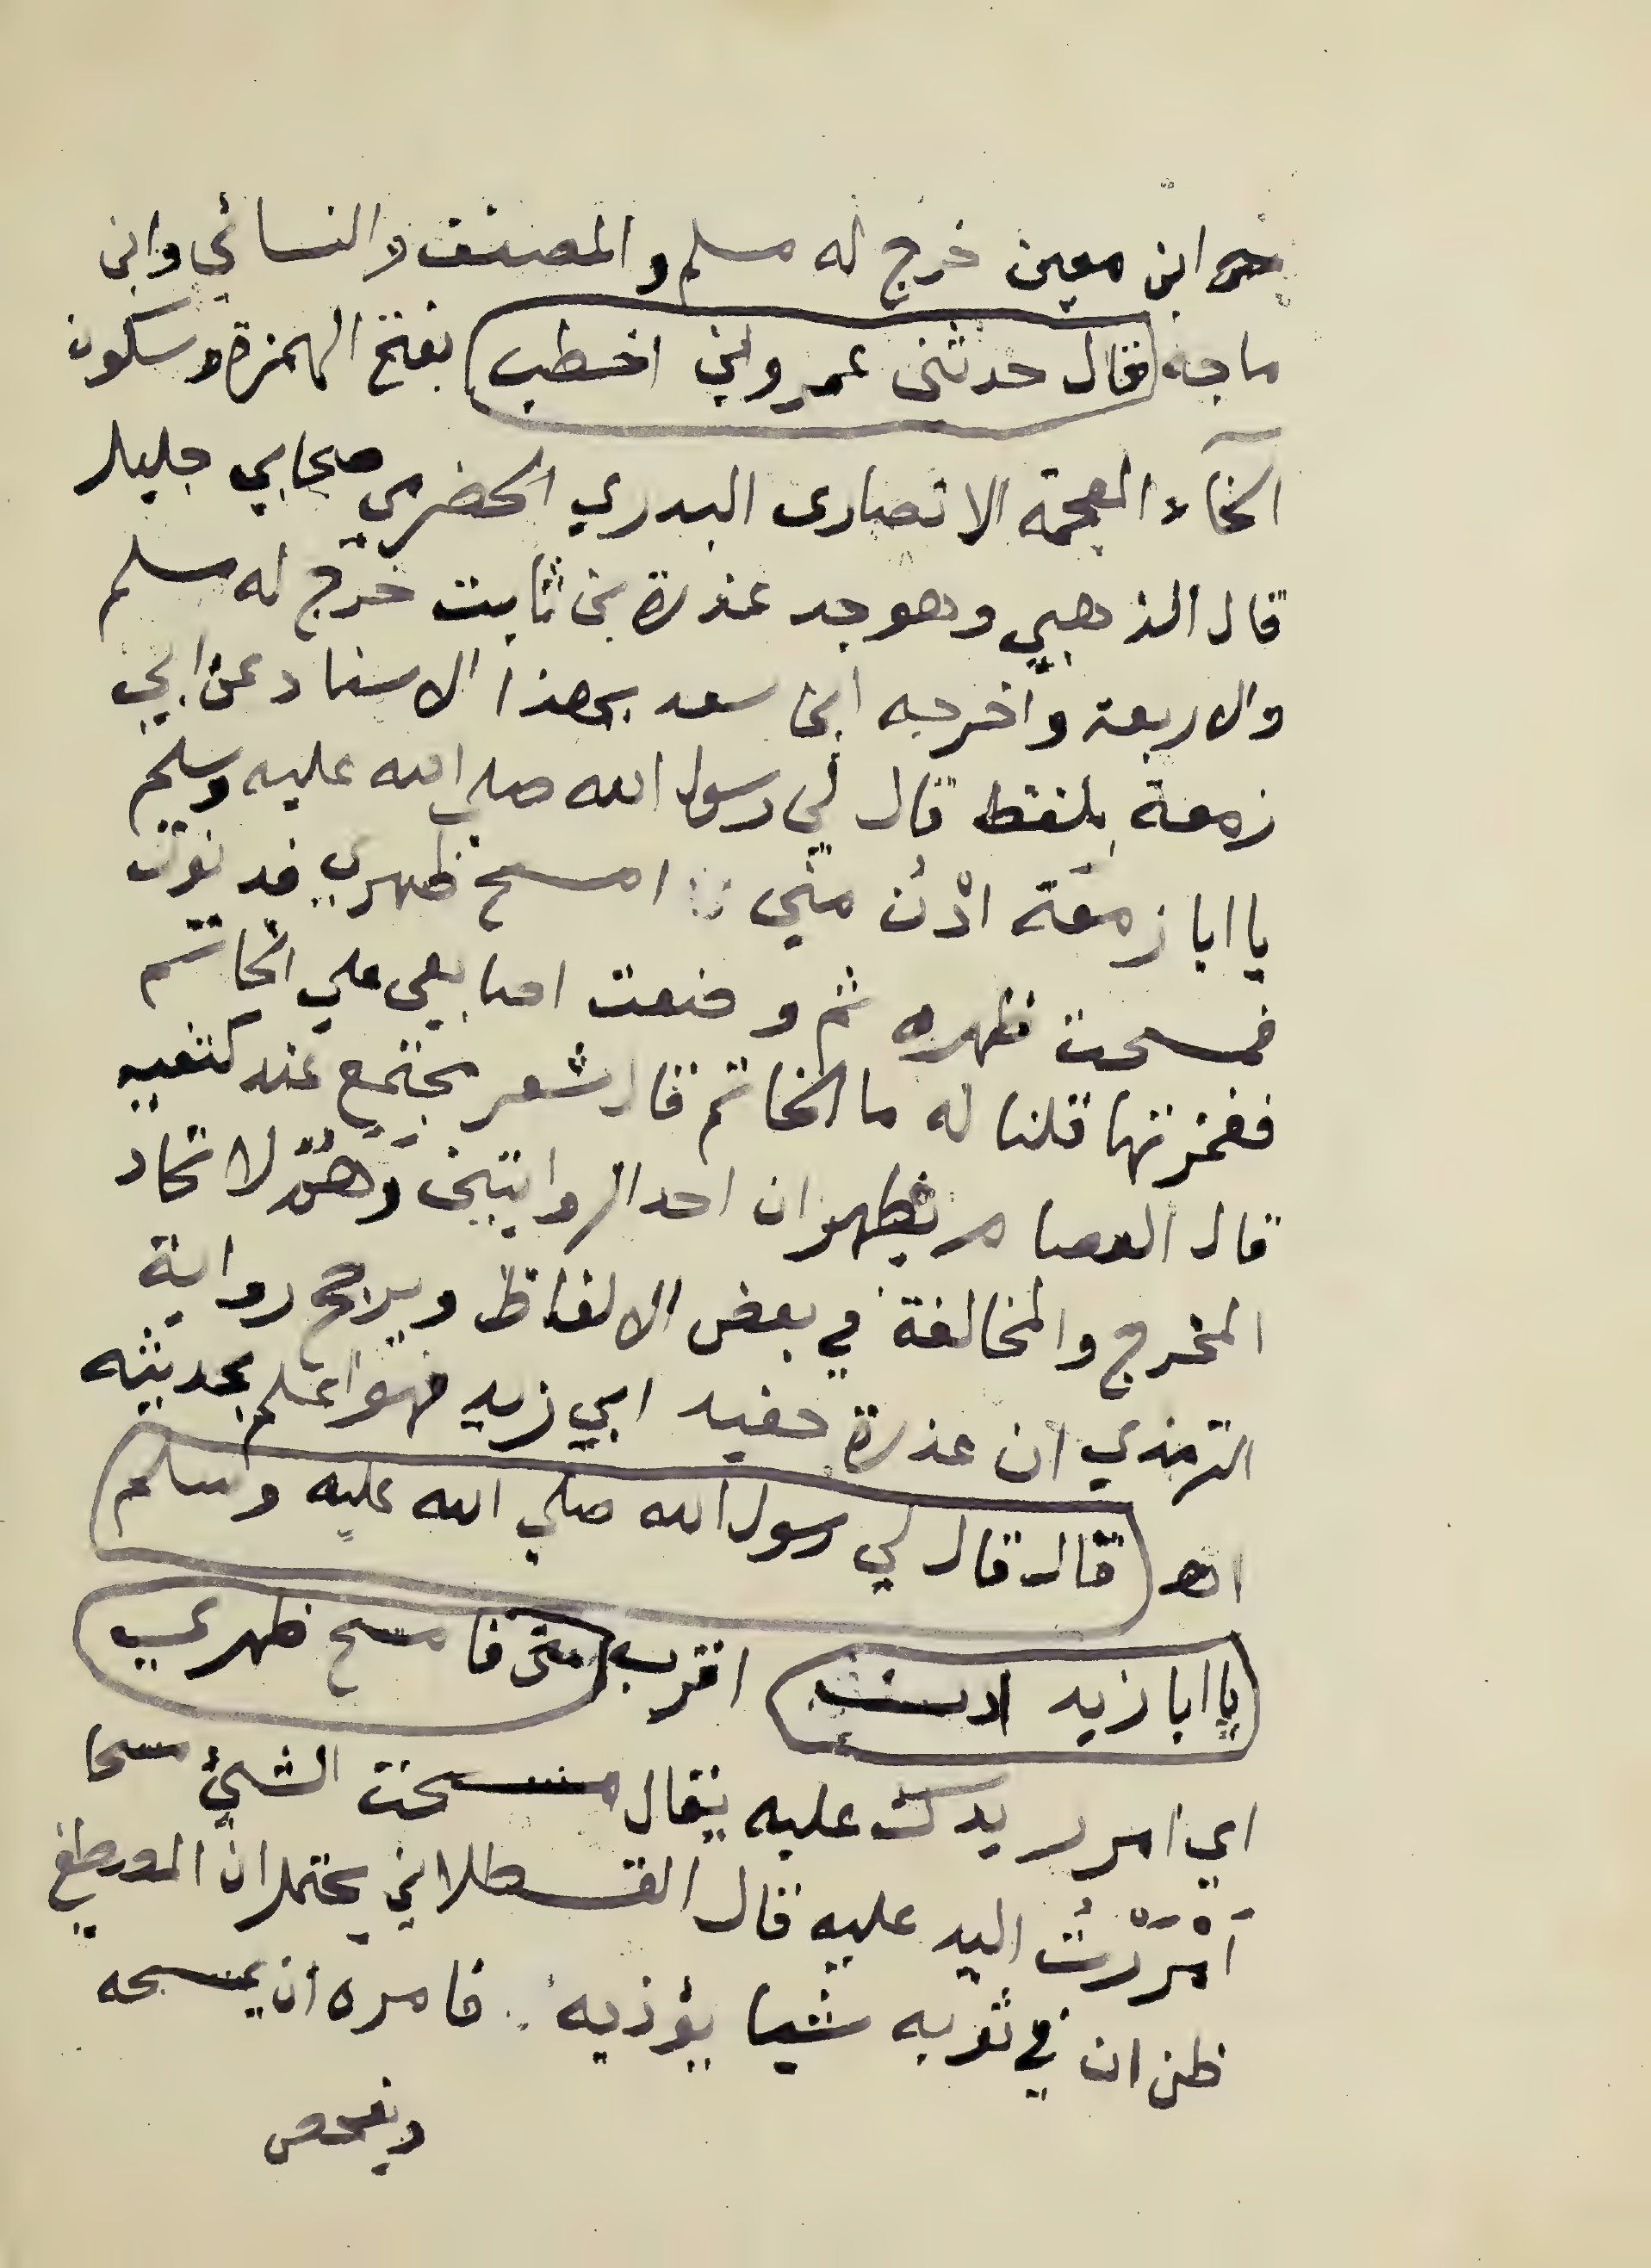 ابن معين خرج له مسلم والمصنف والنسائي وابن
ماجه قال حدثنى عمرو بن اخطب بفتح الهمزة وسكون
الخآء المعجمة الانصارى البدري الحضرمي صحابي جليل
قال الذهبي وهو جد عذرة بن ثابت خرج له مسلم
والاربعة واخرجه ابن سعد بهذا الاسناد عن ابي
زمعة بلفظ قال لي رسول الله صلي الله عليه وسلم
يا ابا زمعة ادْنُ منّي امسح ظهري فدنوت
فمسحت ظهره ثم وضعت اصابعي علي الخاتم
فغمزتها قلنا له ما الخاتم قال شعر يجتمع عند كتفيه
قال العصام يظهر ان احد الروايتين وَهْمٌ لا تحاد
المخرج والمخالفة في بعض الالفاظ ويرجح رواية
الترمذي ان عذرة حفيد ابي زيد فهو اعلم بحديثه
اهـ قال قال لي رسول الله صلي الله عليه وسلم
يا ابا زيد ادن اقرب مني فامسح ظهري
اي امرر يدك عليه يقال مسحت الشيئ مسحا
اَمْرَرْتُ اليد عليه قال القسطلاني يحتمل ان المصطفي
ظن ان في ثوبه شيا يؤذيه فامره ان يمسحه
ويفحص